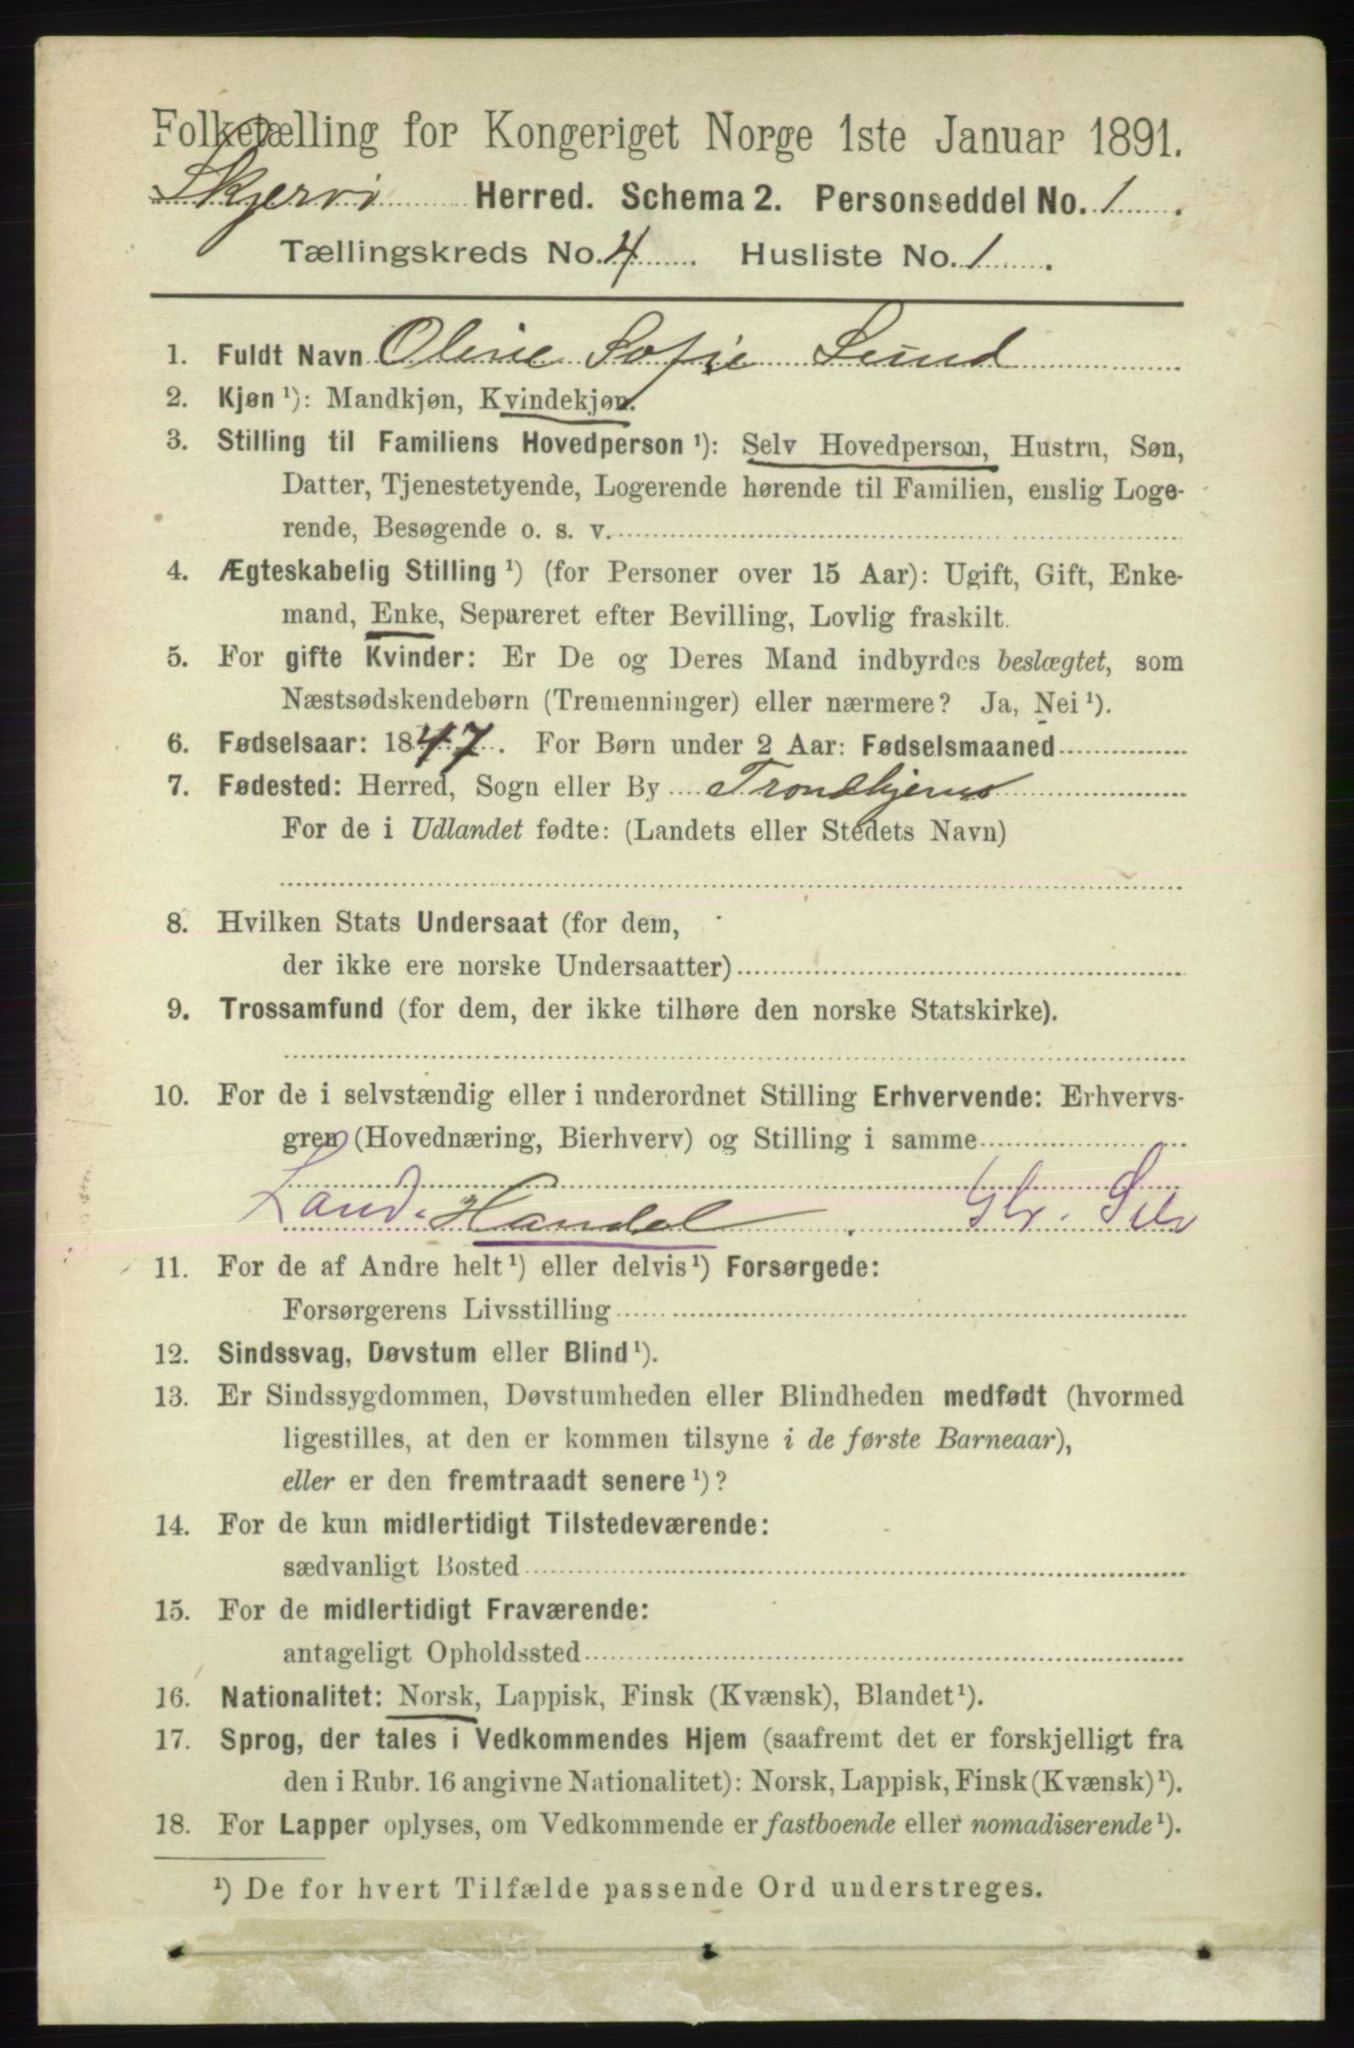 Folketælling for Kongeriget Norge 1ste Januar 1891.
Skjervø Herred. Schema 2. Personseddel No. 1.
Tællingskreds No. 4. Husliste No. 1.
1. Fuldt Navn Oline Sofie Lund
2. Kjøn ¹): Mandkjøn, Kvindekjøn.
3. Stilling til Familiens Hovedperson ¹): Selv Hovedperson, Hustru, Søn,
Datter, Tjenestetyende, Logerende hørende til Familien, enslig Loge-
rende, Besøgende o. s. v.
4. Ægteskabelig Stilling ¹) (for Personer over 15 Aar): Ugift, Gift, Enke-
mand, Enke, Separeret efter Bevilling, Lovlig fraskilt.
5. For gifte Kvinder: Er De og Deres Mand indbyrdes beslægtet, som
Næstsødskendebørn (Tremenninger) eller nærmere? Ja, Nei ¹).
6. Fødselsaar: 1847. For Børn under 2 Aar: Fødselsmaaned
7. Fødested: Herred, Sogn eller By Trondhjems
For de i Udlandet fødte: (Landets eller Stedets Navn)
8. Hvilken Stats Undersaat (for dem,
der ikke ere norske Undersaatter)
9. Trossamfund (for dem, der ikke tilhøre den norske Statskirke).
10. For de i selvstændig eller i underordnet Stilling Erhvervende: Erhvervs-
gren (Hovednæring, Bierhverv) og Stilling i samme
Land. Handel. Selv
11. For de af Andre helt ¹) eller delvis ¹) Forsørgede:
Forsørgerens Livsstilling
12. Sindssvag, Døvstum eller Blind ¹).
13. Er Sindssygdommen, Døvstumheden eller Blindheden medfødt (hvormed
ligestilles, at den er kommen tilsyne i de første Barneaar),
eller er den fremtraadt senere ¹)?
14. For de kun midlertidigt Tilstedeværende:
sædvanligt Bosted
15. For de midlertidigt Fraværende:
antageligt Opholdssted
16. Nationalitet: Norsk, Lappisk, Finsk (Kvænsk), Blandet ¹).
17. Sprog, der tales i Vedkommendes Hjem (saafremt det er forskjelligt fra
den i Rubr. 16 angivne Nationalitet): Norsk, Lappisk, Finsk (Kvænsk) ¹).
18. For Lapper oplyses, om Vedkommende er fastboende eller nomadiserende ¹).
¹) De for hvert Tilfælde passende Ord understreges.